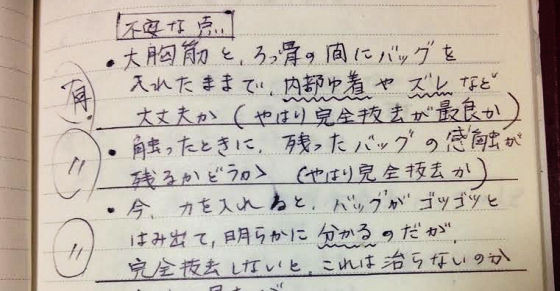 不安な点
・大胸筋と、ろっ骨の間にバッグを
入れたままで、内部ゆ着やズレなど
再. 大丈夫か(やはり完全抜去が最良か)
・触ったときに、残ったバッグの感触が
〃 残るかどうか (やはり完全抜去か)
・今、力を入れると、バッグがゴツゴツと
〃 はみ出て、明らかに分かるのだが、
完全抜去しないと、これは治らないのか